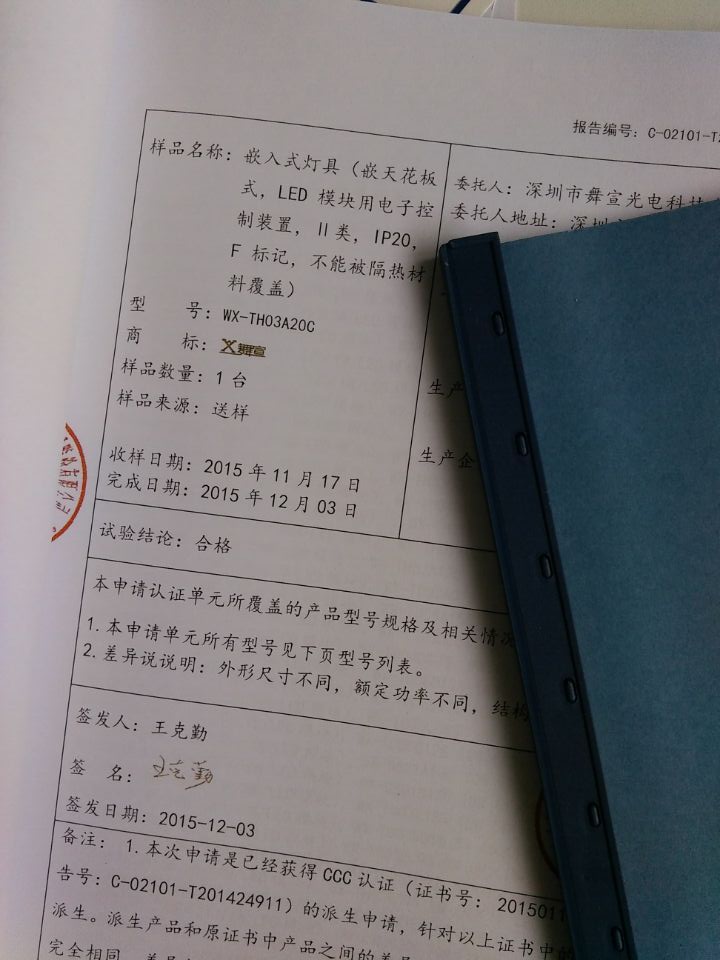 报告编号: C-02101-T2
样品名称: 嵌入式灯具 (嵌天花板
式, LED 模块用电子控
制装置, II类, IP20,
F 标记, 不能被隔热材
料覆盖)
型 号: WX-TH03A20C
商 标: 舞宣
样品数量: 1 台
样品来源: 送样
收样日期: 2015 年 11 月 17 日
完成日期: 2015 年 12 月 03 日
委托人: 深圳市舞宣光电科技
委托人地址: 深圳
生产
生产企
试验结论: 合格
本申请认证单元所覆盖的产品型号规格及相关情况
1.本申请单元所有型号见下页型号列表。
2.差异说说明: 外形尺寸不同, 额定功率不同, 结构
签发人: 王克勤
签 名: 王克勤
签发日期: 2015-12-03
备注: 1.本次申请是已经获得 CCC 认证 (证书号: 2015011
告号: C-02101-T201424911) 的派生申请, 针对以上证书中的
派生。派生产品和原证书中产品之间的差
完全相同, 差异